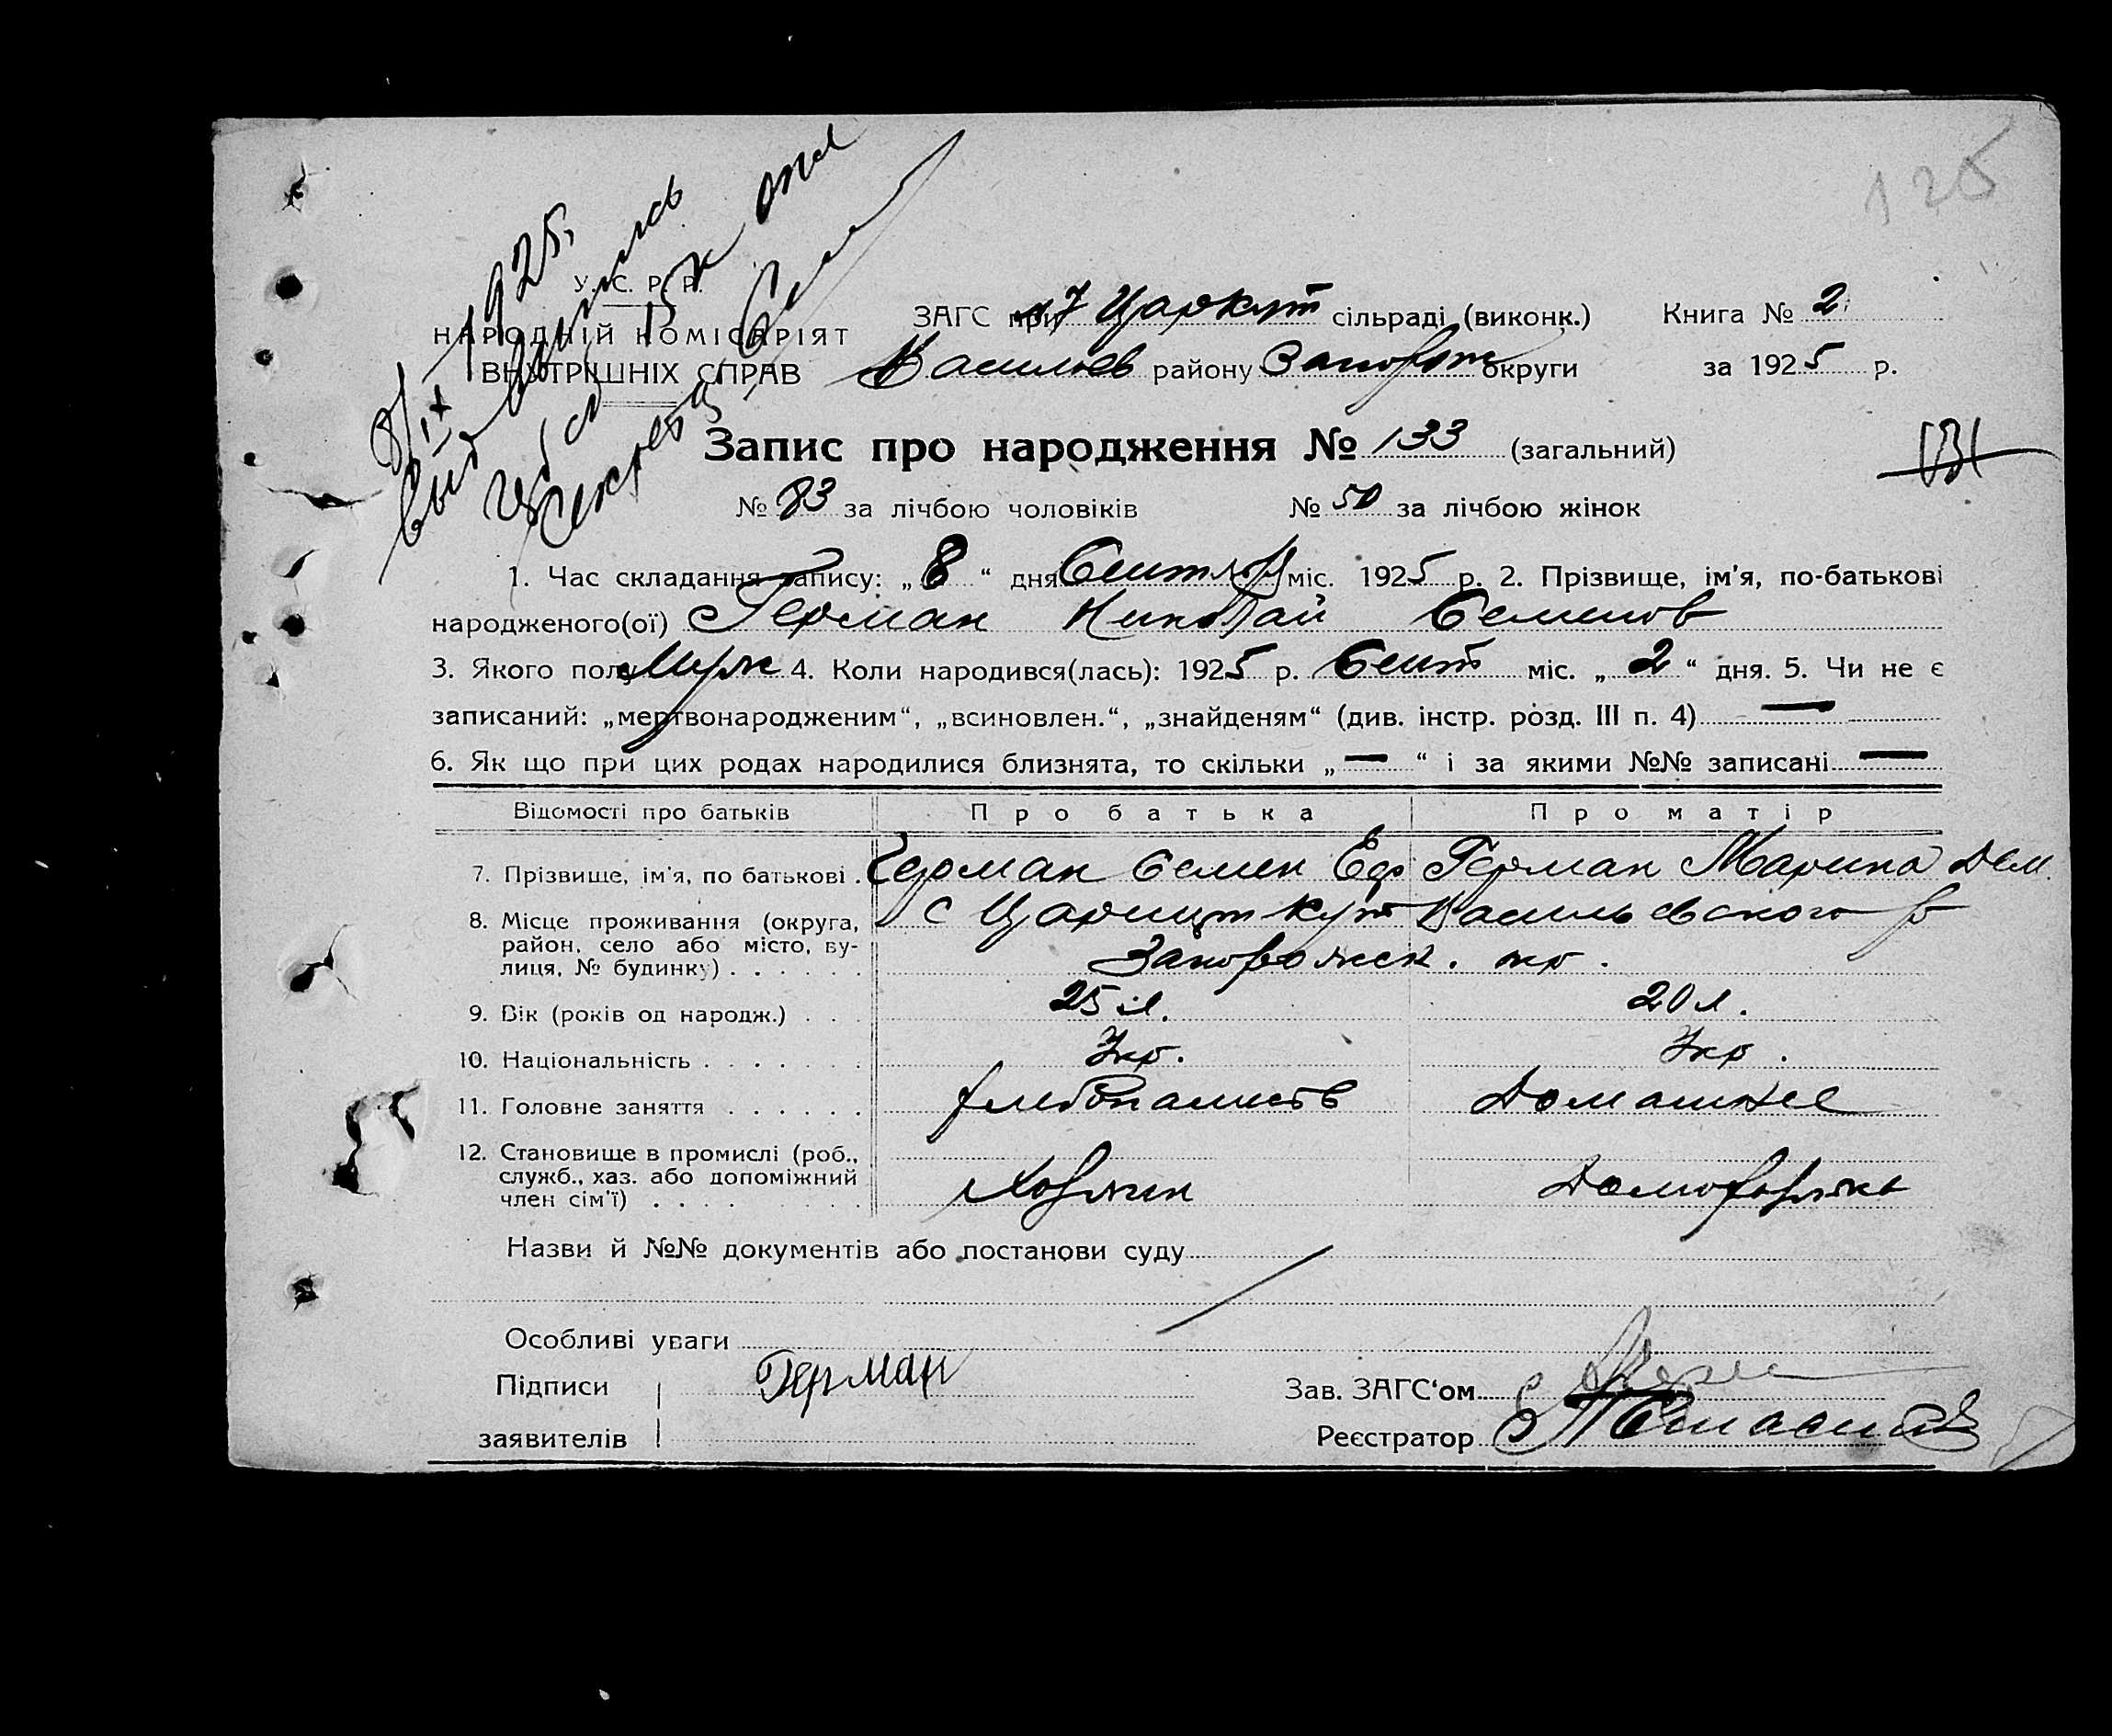 125
8/IX 1925.
У. С. Р. Р.
НАРОДНІЙ КОМІСАРІЯТ
ВНУТРІШНІХ СПРАВ
ЗАГС при 7 Царкут сільраді (виконк.) Книга № 2
Васильев району Запорож округи за 1925 р.
Запис про народження № 133 (загальний)
131
№ 83 за лічбою чоловіків № 50 за лічбою жінок
1. Час складання запису: „ 8 “ дня Сентября міс. 1925 р. 2. Прізвище, ім’я, по-батькові
народженого(ої) Герман Николай Семенов
3. Якого полу Муж 4. Коли народився(лась): 1925 р. Сент міс. „ 2 “ дня. 5. Чи не є
записаний: „мертвонародженим“, „всиновлен.“, „знайденям“ (див. інстр. розд. III п. 4) —
6. Як що при цих родах народилися близнята, то скільки „ — “ і за якими №№ записані —
Відомості про батьків Про батька Про матір
7. Прізвище, ім’я, по батькові . Герман Семен Еф Герман Марина Дем.
8. Місце проживання (округа, район, село або місто, ву-лиця, № будинку) . . . . . . с Царицт Кут Васильевского р
Запорожск. окр.
9. Вік (років од народж.) . . . 25 л. 20 л.
10. Національність . . . . . . . Укр. Укр.
11. Головне заняття . . . . . . Хлебопашеств Домашнее
12. Становище в промислі (роб., служб., хаз. або допоміжний член сім’ї) . . . . Хозяин Домохозяйка
Назви й №№ документів або постанови суду
Особливі уваги
Підписи Герман Зав. ЗАГС‘ом
заявителів Реєстратор